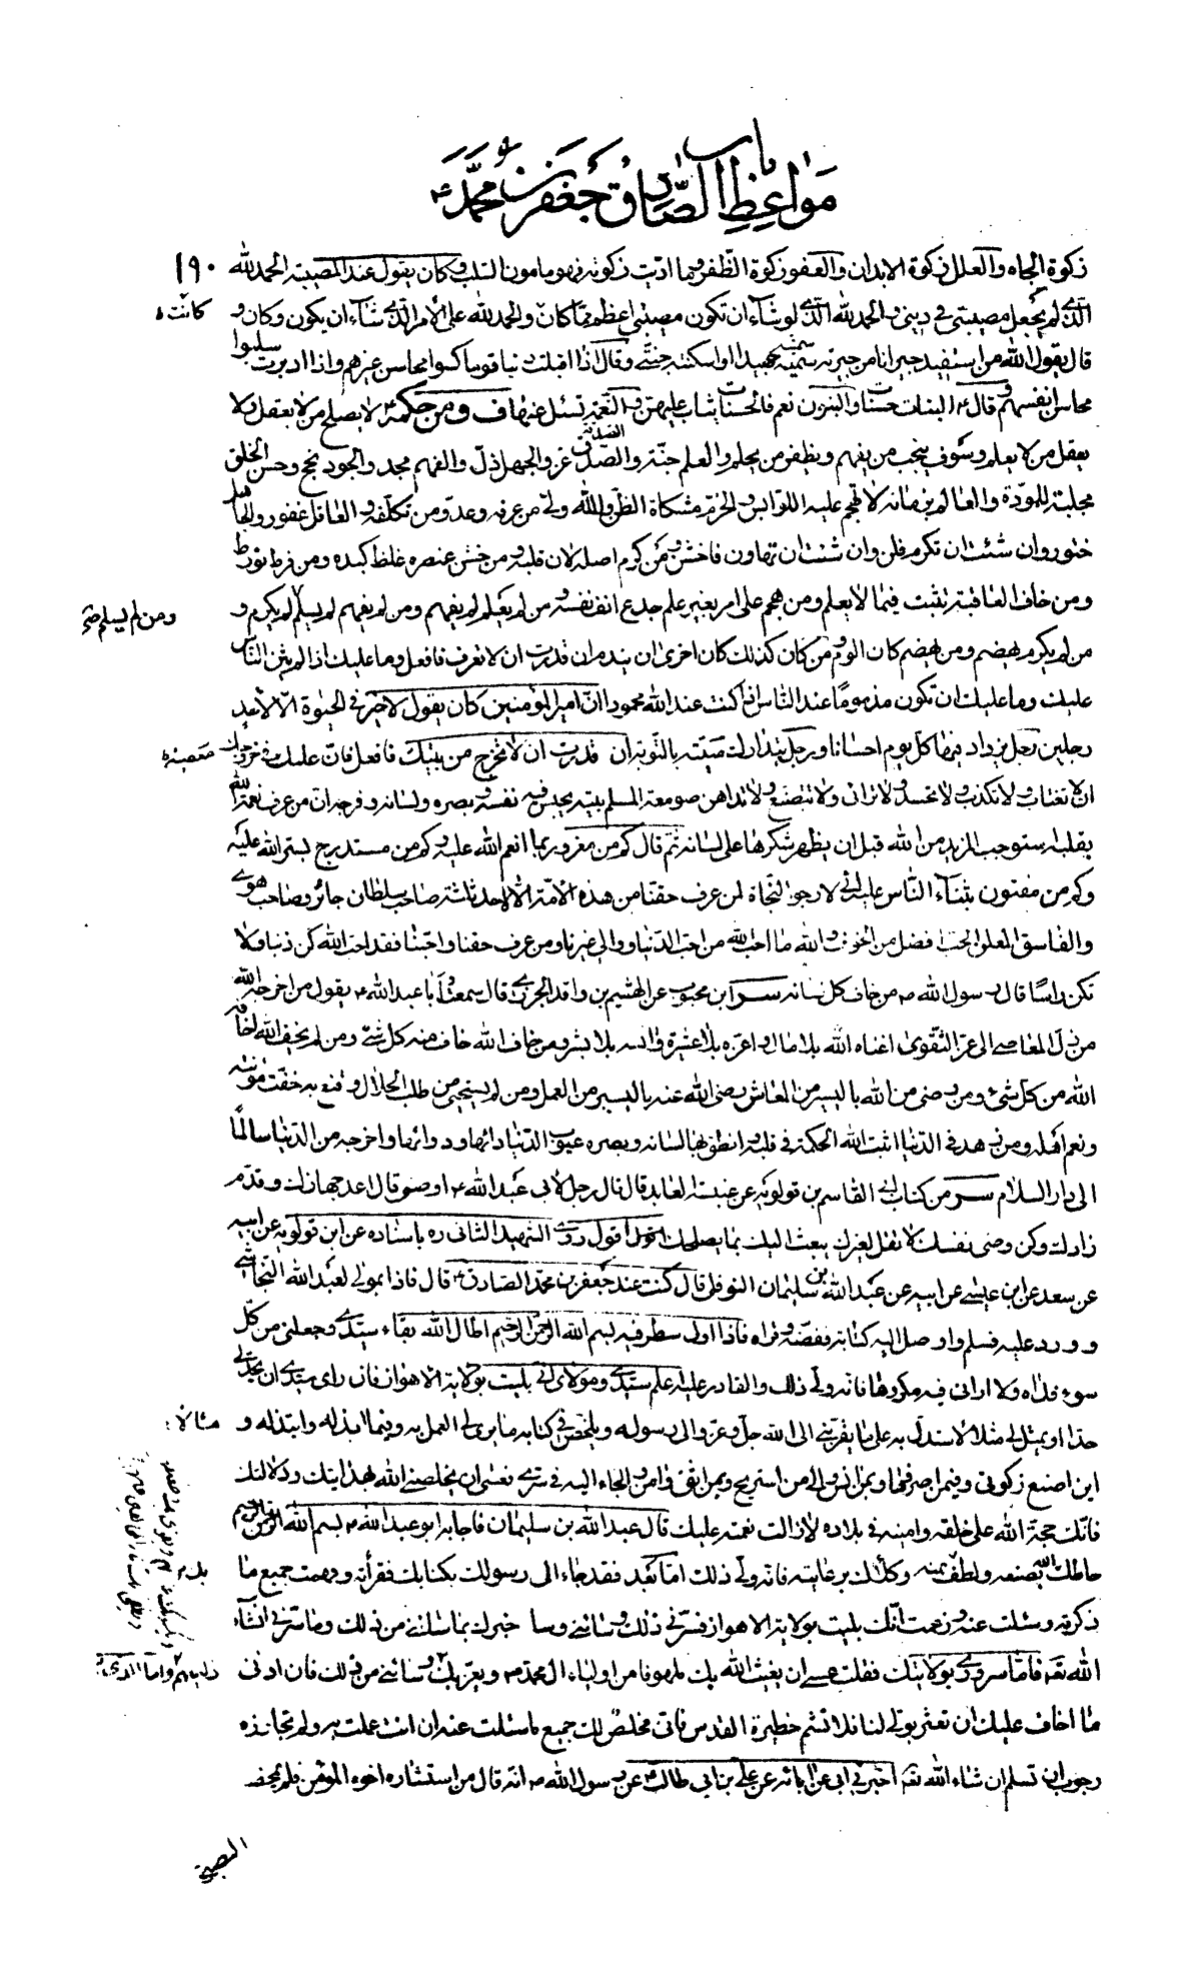 باب
مواعظ الصادق جعفر بن محمد ع
١٩٠
زكوة الجاه والعلل زكوة الابدان والعفو زكوة الظفر وما اديت زكوته فهو مامون السلب وكان يقول عند المصيبة الحمد لله
الذى لم يجعل مصيبتى فى دينى والحمد لله الذى لو شاء ان تكون مصيبتى اعظم مما كان والحمد لله على الأمر الذى شاء ان يكون وكان و
كانت
قال يقول الله من استنقذ حيرانا من حيرته سميته حميدا واسكنته جنتى وقال اذا اقبلت دنيا قوم كسوا محاسن غيرهم واذا ادبرت سلبوا
محاسن انفسهم وقال ع البنات حسنات والبنون نعم فالحسنات يثاب عليهن والنعمة تسئل عنها ف ومن حكمه ع لا يصلح من لا يعقل ولا
يعقل من لا يعلم وسوف ينجب من يفهم ويظفر من يحلم والعلم جنة والصدق عز والجهل ذل والفهم مجد والجود نجح وحسن الخلق
مجلبة للمودة والعالم بزمانه لا تهجم عليه اللوابس والحزم مشكاة الظن والله ولى من عرفه وعدو من تكلفه والعاقل غفور والجاهل
ختور وان شئت ان تكرم فلن وان شئت ان تهان فاخشن ومن كرم اصله لان قلبه ومن خشن عنصره غلظ كبده ومن فرط تورط
ومن خاف العاقبة تثبت فيما لا يعلم ومن هجم على امر بغير علم جدع انف نفسه ومن لم يعلم لم يفهم ومن لم يفهم لم يسلم لم يكرم و
ومن لم يسلم
من لم يكرم يهضم ومن يهضم كان الوم ومن كان كذلك كان احرى ان يندم ان قدرت ان لا تعرف فافعل وما عليك اذا لم يثن الناس
عليك وما عليك ان تكون مذموما عند الناس اذا كنت عند الله محمودا ان امير المؤمنين كان يقول لا خير فى الحيوة الا لأحد
رجلين رجل يزداد فيها كل يوم احسانا ورجل يتدارك منيته بالتوبة ان قدرت ان لا تخرج من بيتك فافعل فان عليك فى خروجك
ان لا تغتاب ولا تكذب ولا تحسد ولا ترائى ولا تتصنع ولا تداهن صومعة المسلم بيته يحبس فيه نفسه وبصره ولسانه وفرجه ان من عرف نعمة الله
بقلبه استوجب المزيد من الله قبل ان يظهر شكرها على لسانه ثم قال كم من مغرور بما انعم الله عليه وكم من مستدرج بستر الله عليه
وكم من مفتون بثناء الناس عليه انى لارجو النجاة لمن عرف حقنا من هذه الامة الا لاحد ثلثة صاحب سلطان جائر وصاحب هوى
والفاسق المعلن الحب افضل من الخوف والله ما احب الله من احب الدنيا ووالى غيرنا ومن عرف حقنا واحبنا فقد احب الله كن ذنبا ولا
تكن راسا قال رسول الله ص من خاف كل لسانه سر ابن محبوب عن الهيثم بن واقد الجزرى قال سمعت ابا عبد الله ع يقول من اخرجه الله
من ذل المعاصى الى عز التقوى اغناه الله بلا مال واعزه بلا عشيرة وانسه بلا بشر ومن خاف الله خاف منه كل شئ ومن لم يخف الله اخافه
الله من كل شئ ومن رضى من الله باليسير من المعاش رضى الله عنه باليسير من العمل ومن لم يستحى من طلب الحلال وقنع به خفت مؤنته
ونعم اهله ومن زهد فى الدنيا اثبت الله الحكمة فى قلبه وانطق بها لسانه وبصره عيوب الدنيا دائها ودوائها واخرجه من الدنيا سالما
الى دار السلام سر من كتاب ابى القاسم بن قولويه عن عنبسة العابد قال قال رجل لأبى عبد الله ع اوصنى قال اعد جهازك وقدم
زادك وكن وصى نفسك لا تقل لغيرك يبعث اليك بما يصلحك اقول روى الشهيد الثانى ره باسناده عن ابن قولويه عن ابيه
عن سعد عن ابن عيسى عن ابيه عن عبد الله بن سليمان النوفلى قال كنت عند جعفر بن محمد الصادق ع قال فاذا بمولى لعبد الله النجاشى
وورد عليه فسلم واوصل اليه كتابه ففضه وقراه فاذا اول سطر فيه بسم الله الرحمن الرحيم اطال الله بقاء سيدى وجعلنى من كل
سوء فداه ولا ارانى فيه مكروها فانه ولى ذلك والقادر عليه اعلم سيدى ومولاى انى بليت بولاية الاهواز فان راى سيدى ان يحد لى
حدا او يمثل لى مثلا لاستدل به على ما يقربنى الى الله جل وعز والى رسوله ويلخص فى كتابه ما يرى لى العمل به وفيما ابذله وابتذله و
مثالا
اين اضع زكوتى وفيمن اصرفها وبمن انس والى من استريح وبمن اثق وامن والجاء اليه فى سرى فعسى ان يخلصنى الله بهدايتك ودلالتك
فانك حجة الله على خلقه وامينه فى بلاده لا زالت نعمته عليك قال عبد الله بن سليمان فاجابه ابو عبد الله ع بسم الله الرحمن الرحيم
حاطك الله بصنعه ولطف بمنه وكلاك برعايته فانه ولى ذلك اما بعد فقد جاء الى رسولك بكتابك فقرأته وفهمت جميع ما
ذكرته وسئلت عنه وزعمت انك بليت بولاية الاهواز فسرنى ذلك وسائنى وسا خبرك بما سائنى من ذلك وما سرنى انشاء
الله تعه فاما سرورى بولايتك فقلت عسى ان يغيث الله بك ملهوفا من اولياء ال محمد ص ويعز بك وسائنى من ذلك فان ادنى
ما اخاف عليك ان تعثر بولى لنا فلا تشم حظيرة القدس فانى مخلص لك جميع ما سئلت عنه ان انت عملت به ولم تجاوزه
رجوت ان تسلم ان شاء الله تعه اخبرنى ابى عن ابائه عن على بن ابى طالب ع عن رسول الله ص انه قال من استشاره اخوه المؤمن فلم يمحضه
النصيحة